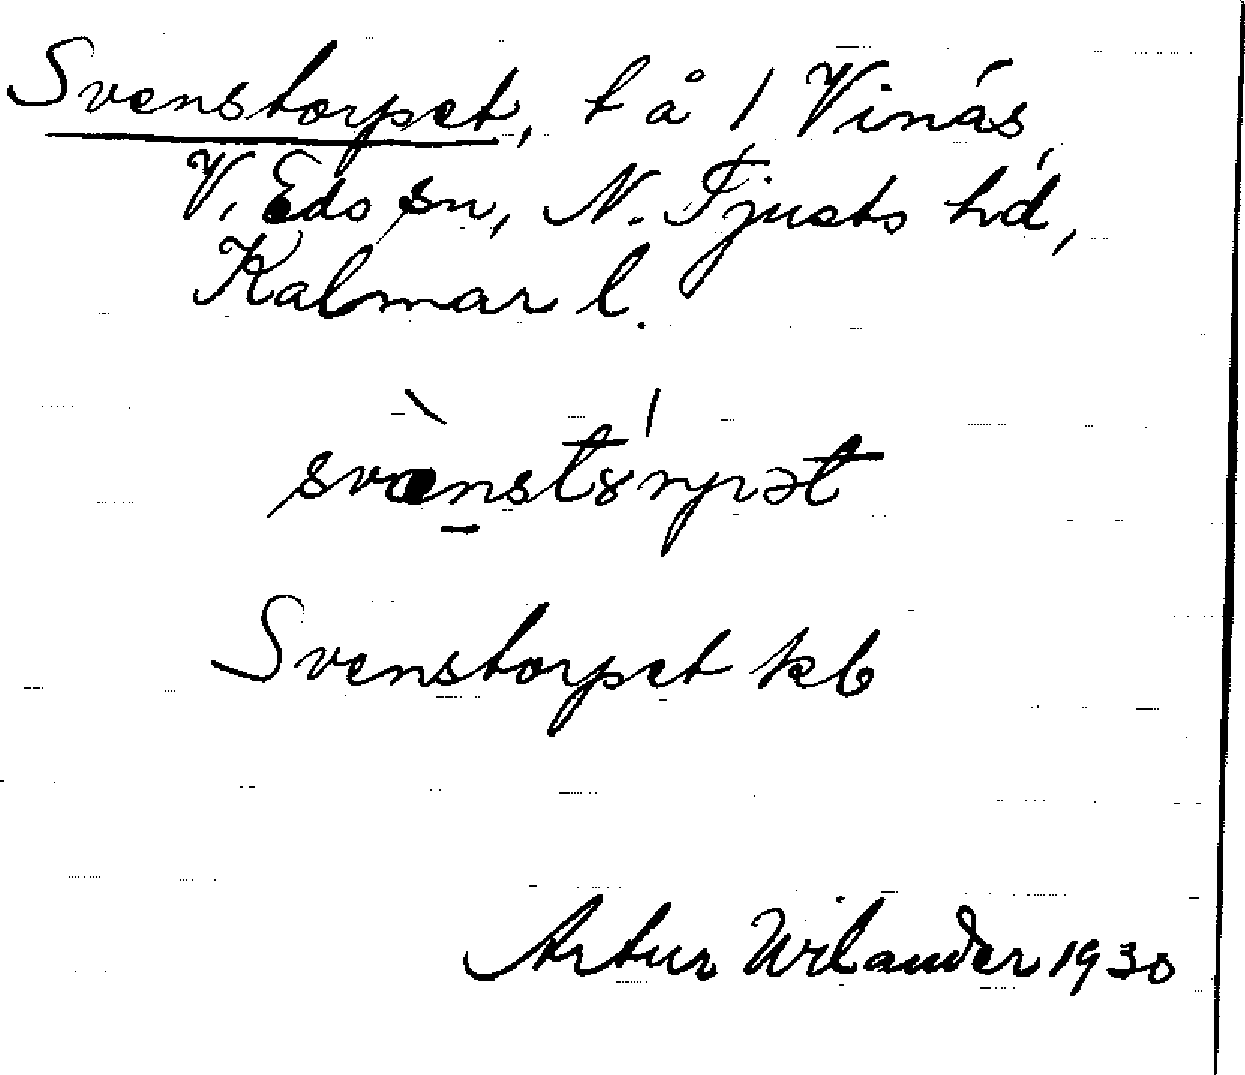 Svenstorpet, t å 1 Vinäs
V. Eds sn, N. Tjusts hd,
Kalmar l.
svænstɤrpət
Svenstorpet kb
Artur Wilander 1930